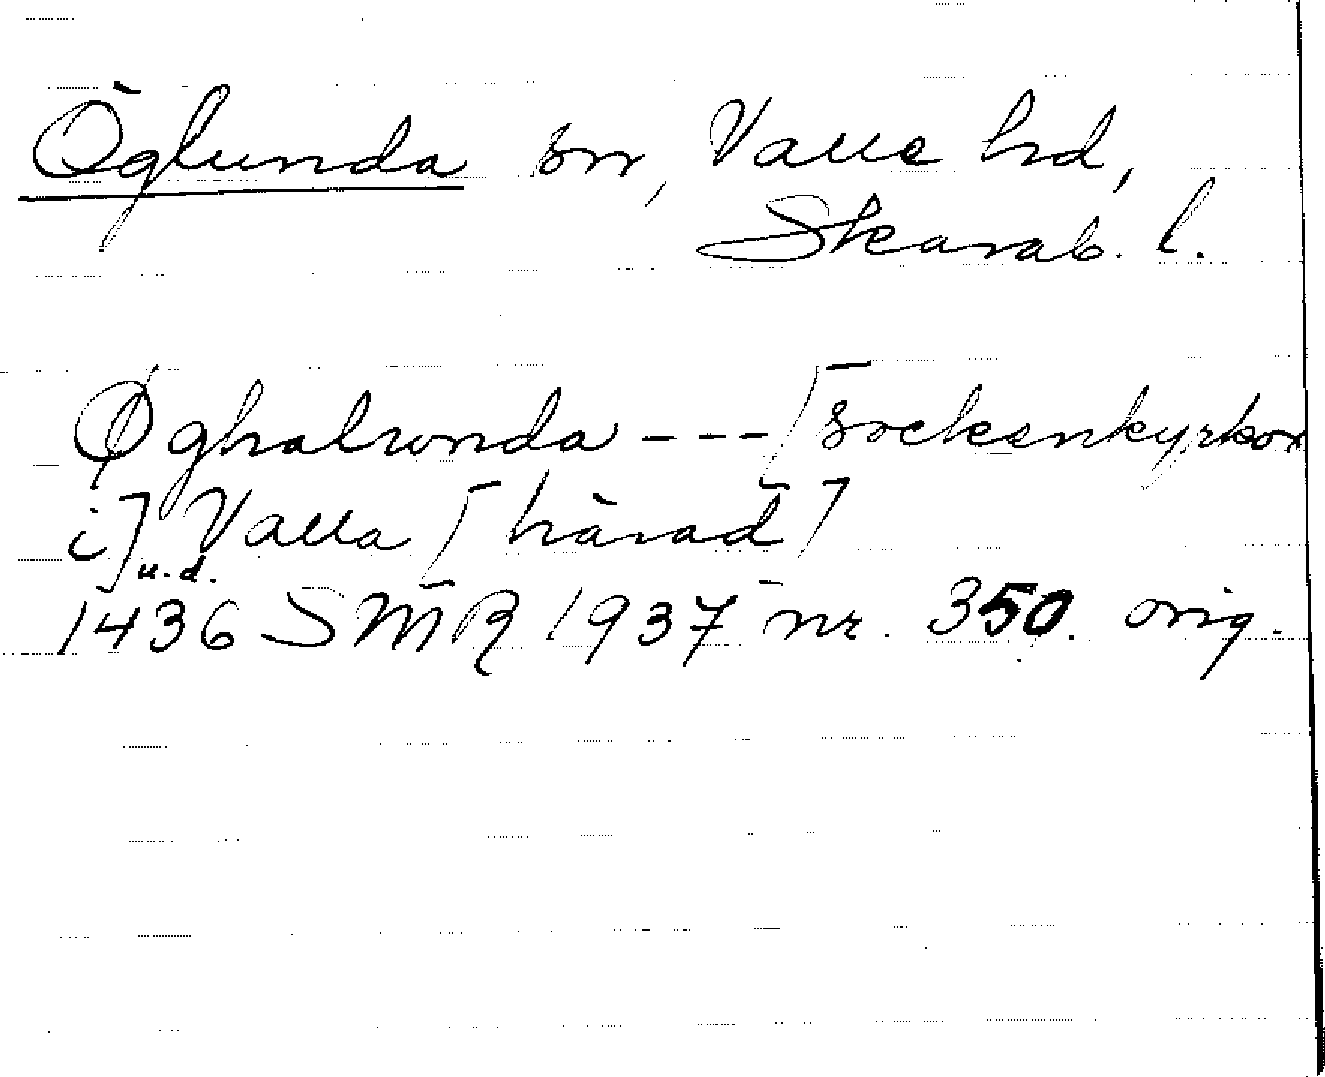 Öglunda sn, Valle hd,
Skarab. l.
Øghalunda --- [sockenkyrkor
i] Valla [härad]
u.d.
1436 SMR 1937 nr. 350. orig.